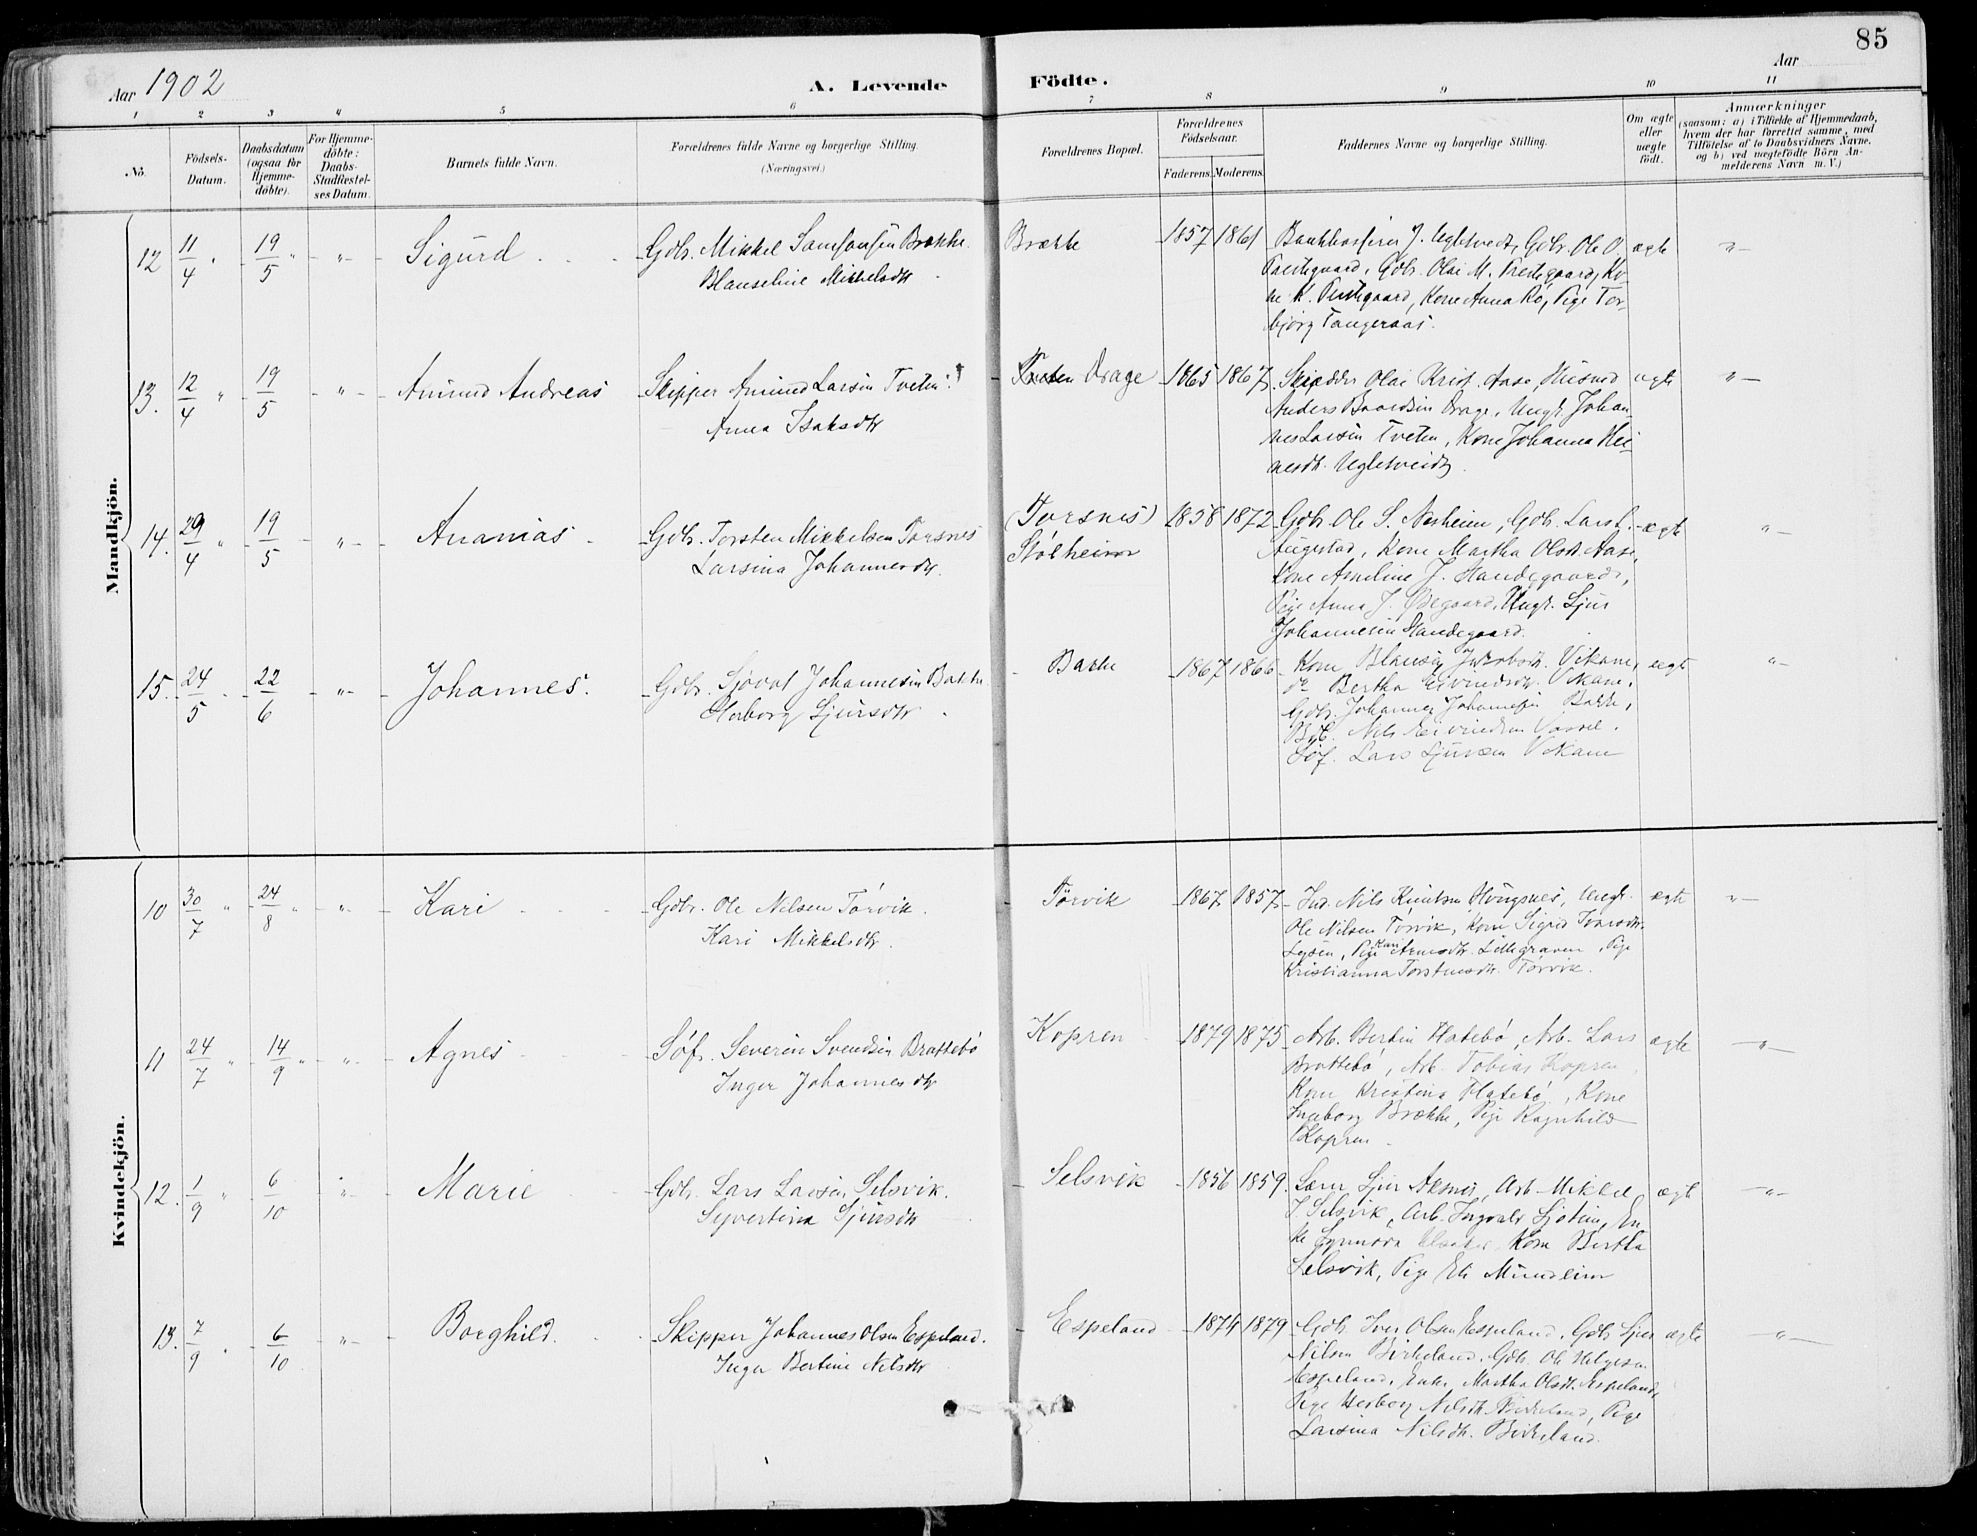 85
Aar 1902
A. Levende
Födte.
Aar
1 2 3 4 5 6 7 8 9 10 11
No.
Födsels-
Datum.
Daabsdatum
(ogsaa for
Hjemme-
döbte).
For Hjemme-
döbte:
Daabs-
Stadfæstel-
ses Datum.
Barnets fulde Navn.
Forældrenes fulde Navne og borgerlige Stilling.
(Næringsvei.)
Forældrenes Bopæl.
Forældrenes
Födselsaar.
Faderens. Moderens.
Faddernes Navne og borgerlige Stilling.
Om ægte
eller
uægte
födt.
Anmærkninger
(saasom: a) i Tilfælde af Hjemmedaab,
hvem der har forrettet samme, med
Tilföielse af to Daabsvidners Navne,
og b) ved uægtefödte Börn An-
melderens Navn m. V.)
Mandkjön.
12 11/4 " 19/5 " - " - Sigurd
Gdbr. Mikkel Samsonsen Brække
Blanseline Mikkelsdtr
Brække 1857 1861
J. Ugletvedt, Gdbr. Ole O.
Prestegaard, Gdbr. Olai M. Prestegaard, Ko-
ne K. Prestegaard, Kone Anna Rö, Pige Tor-
björg Tangeraas.
ægte " -
13. 12/4 " 19/5 - " - Amund Andreas
Skipper Amund Larsen Tveten
Anna Isaksdtr
Drage 1865 1867
Olai Krist. Aase, Husmd
Anders Baardsen Drage, Ungk. Johan-
nes Larsen Tveten, Kone Johanna
Ugletveidt.
ægte " -
14. 29/4 " 19/5 - " - Ananias
Gdbr. Torsten Mikkelsen Torsnes
Larsina Johannesdtr.
(Torsnes)
Stölheim
1858 1872
Gdbr. Ole S. Nesheim, Gdbr. Lars L.
Augestad, Kone Martha Olsdtr. Aase,
Kone Arneline J. Handegaard,
Pige Anna J. Ödegaard, Ungk. Sjur
Johannesen Handegaard.
ægte " -
15. 24/5 22/6 - " - Johannes.
Gdbr. Sjovat Johannesen Bakke
Herborg Sjursdtr
Bakke 1867 1866
Kone Blansey Jakobsdtr. Vikane,
do Bertha Eivindsdtr. Vikane,
Gdbr. Johannes Johannesen Bakke,
Nils Eivindsen
Söf. Lars Sjursen Vikane
ægte " -
Kvindekjön.
10 30/7 " 24/8 " - " - Kari
Gdbr. Ole Nilsen Törvik.
Kari Mikkelsdtr.
Törvik 1867 1857
Ind. Nils Knutsen Huugsnes, Ungk.
Ole Nilsen Törvik, Kone Sigrid Ivarsdtr.
Lysen, Pige Kari Arnesdtr. Lillegraven, Pige
Kristianna Torstensdtr. Törvik.
ægte " -
11 24/7 " 14/9 " - " - Agnes
Söf. Severin Svendsen Brattebö
Inger Johannesdtr
Kopren 1879 1875
Arb. Bertin Flatebö, Arb. Lars
Brattebö, Arb. Tobias Kopren,
Kone Kristina Flatebö, Kone
Ingeborg Brække, Pige Ragnhild
Kopren.
ægte - " -
12. 1/9 " 6/10 - " - Marie
Gdbr. Lars Larsen Selsvik.
Syvertina Sjursdtr
Selsvik 1856 1859.
Lærer Sjur Aksnes, Arb. Mikkel
J. Selsvik, Arb. Ingvald Sjotun, En-
ke Synnöva Kone Bertha
Selsvik, Pige Eli Mundheim
ægte - " -
13. 7/9 " 6/10 - " - Borghild.
Skipper Johannes Olsen Espeland.
Inga Bertine Nilsdtr
Espeland 1874 1879
Gdbr. Iver Olsen Espeland, Gdbr. Sjur
Nilsen Birkeland, Gdbr. Ole Helgesen
Espeland, Enke Martha Olsdtr. Espeland,
Pige Herborg Nilsdtr. Birkeland, Pige
Larsina Nilsdtr. Birkeland.
ægte - " -